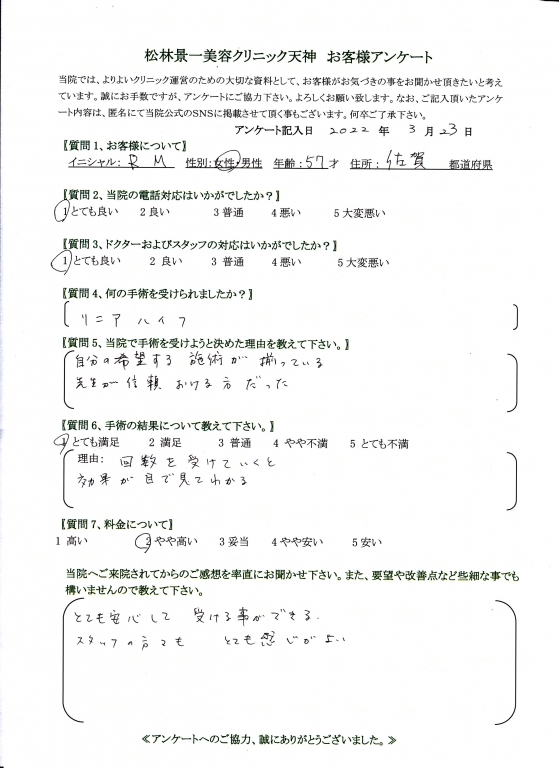 松林景一美容クリニック天神 お客様アンケート
当院では、よりよいクリニック運営のための大切な資料として、お客様がお気づきの事をお聞かせ頂きたいと考え
ています。誠にお手数ですが、アンケートにご協力下さい。よろしくお願い致します。なお、ご記入頂いたアンケ
ート内容は、匿名にて当院公式のSNSに掲載させて頂く事もございます。何卒ご了承下さい。
アンケート記入日 2022 年 3 月 23 日
【質問1、お客様について】
イニシャル: R M 性別:女性・男性 年齢:57才 住所: 佐賀 都道府県
【質問2、当院の電話対応はいかがでしたか?】
1とても良い 2 良い 3 普通 4 悪い 5 大変悪い
【質問3、ドクターおよびスタッフの対応はいかがでしたか?】
1とても良い 2 良い 3 普通 4 悪い 5 大変悪い
【質問4、何の手術を受けられましたか?】
リニア ハイフ
【質問5、当院で手術を受けようと決めた理由を教えて下さい。】
自分の希望する 施術が 揃っている
先生が 信頼 おける方 だった
【質問6、手術の結果について教えて下さい。】
1とても満足 2 満足 3 普通 4 やや不満 5 とても不満
理由: 回数を受けていくと
効果が目で見てわかる
【質問7、料金について】
1 高い 2やや高い 3 妥当 4 やや安い 5 安い
当院へご来院されてからのご感想を率直にお聞かせ下さい。また、要望や改善点など些細な事でも
構いませんので教えて下さい。
とても安心して 受ける事ができる.
スタッフの方ても とても感じがよい
≪アンケートへのご協力、誠にありがとうございました。≫